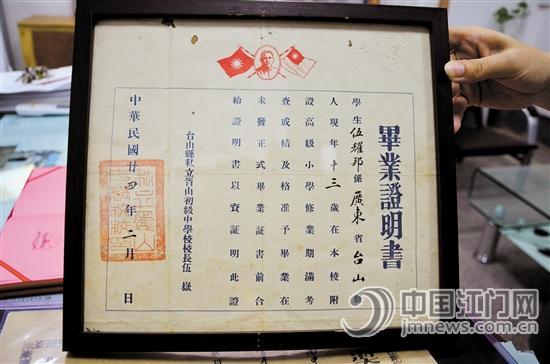 畢業證明書
學生伍耀邦係廣東省台山縣
人現年十三歲在本校附
設高級小學修業期滿考
查成績及格准予畢業在
未發正式畢業証書前合
給證明書以資証明此證
台山縣私立胥山初級中學校校長伍嶽
中華民國廿四年二月 日
中国江门网
jmnews.com.cn